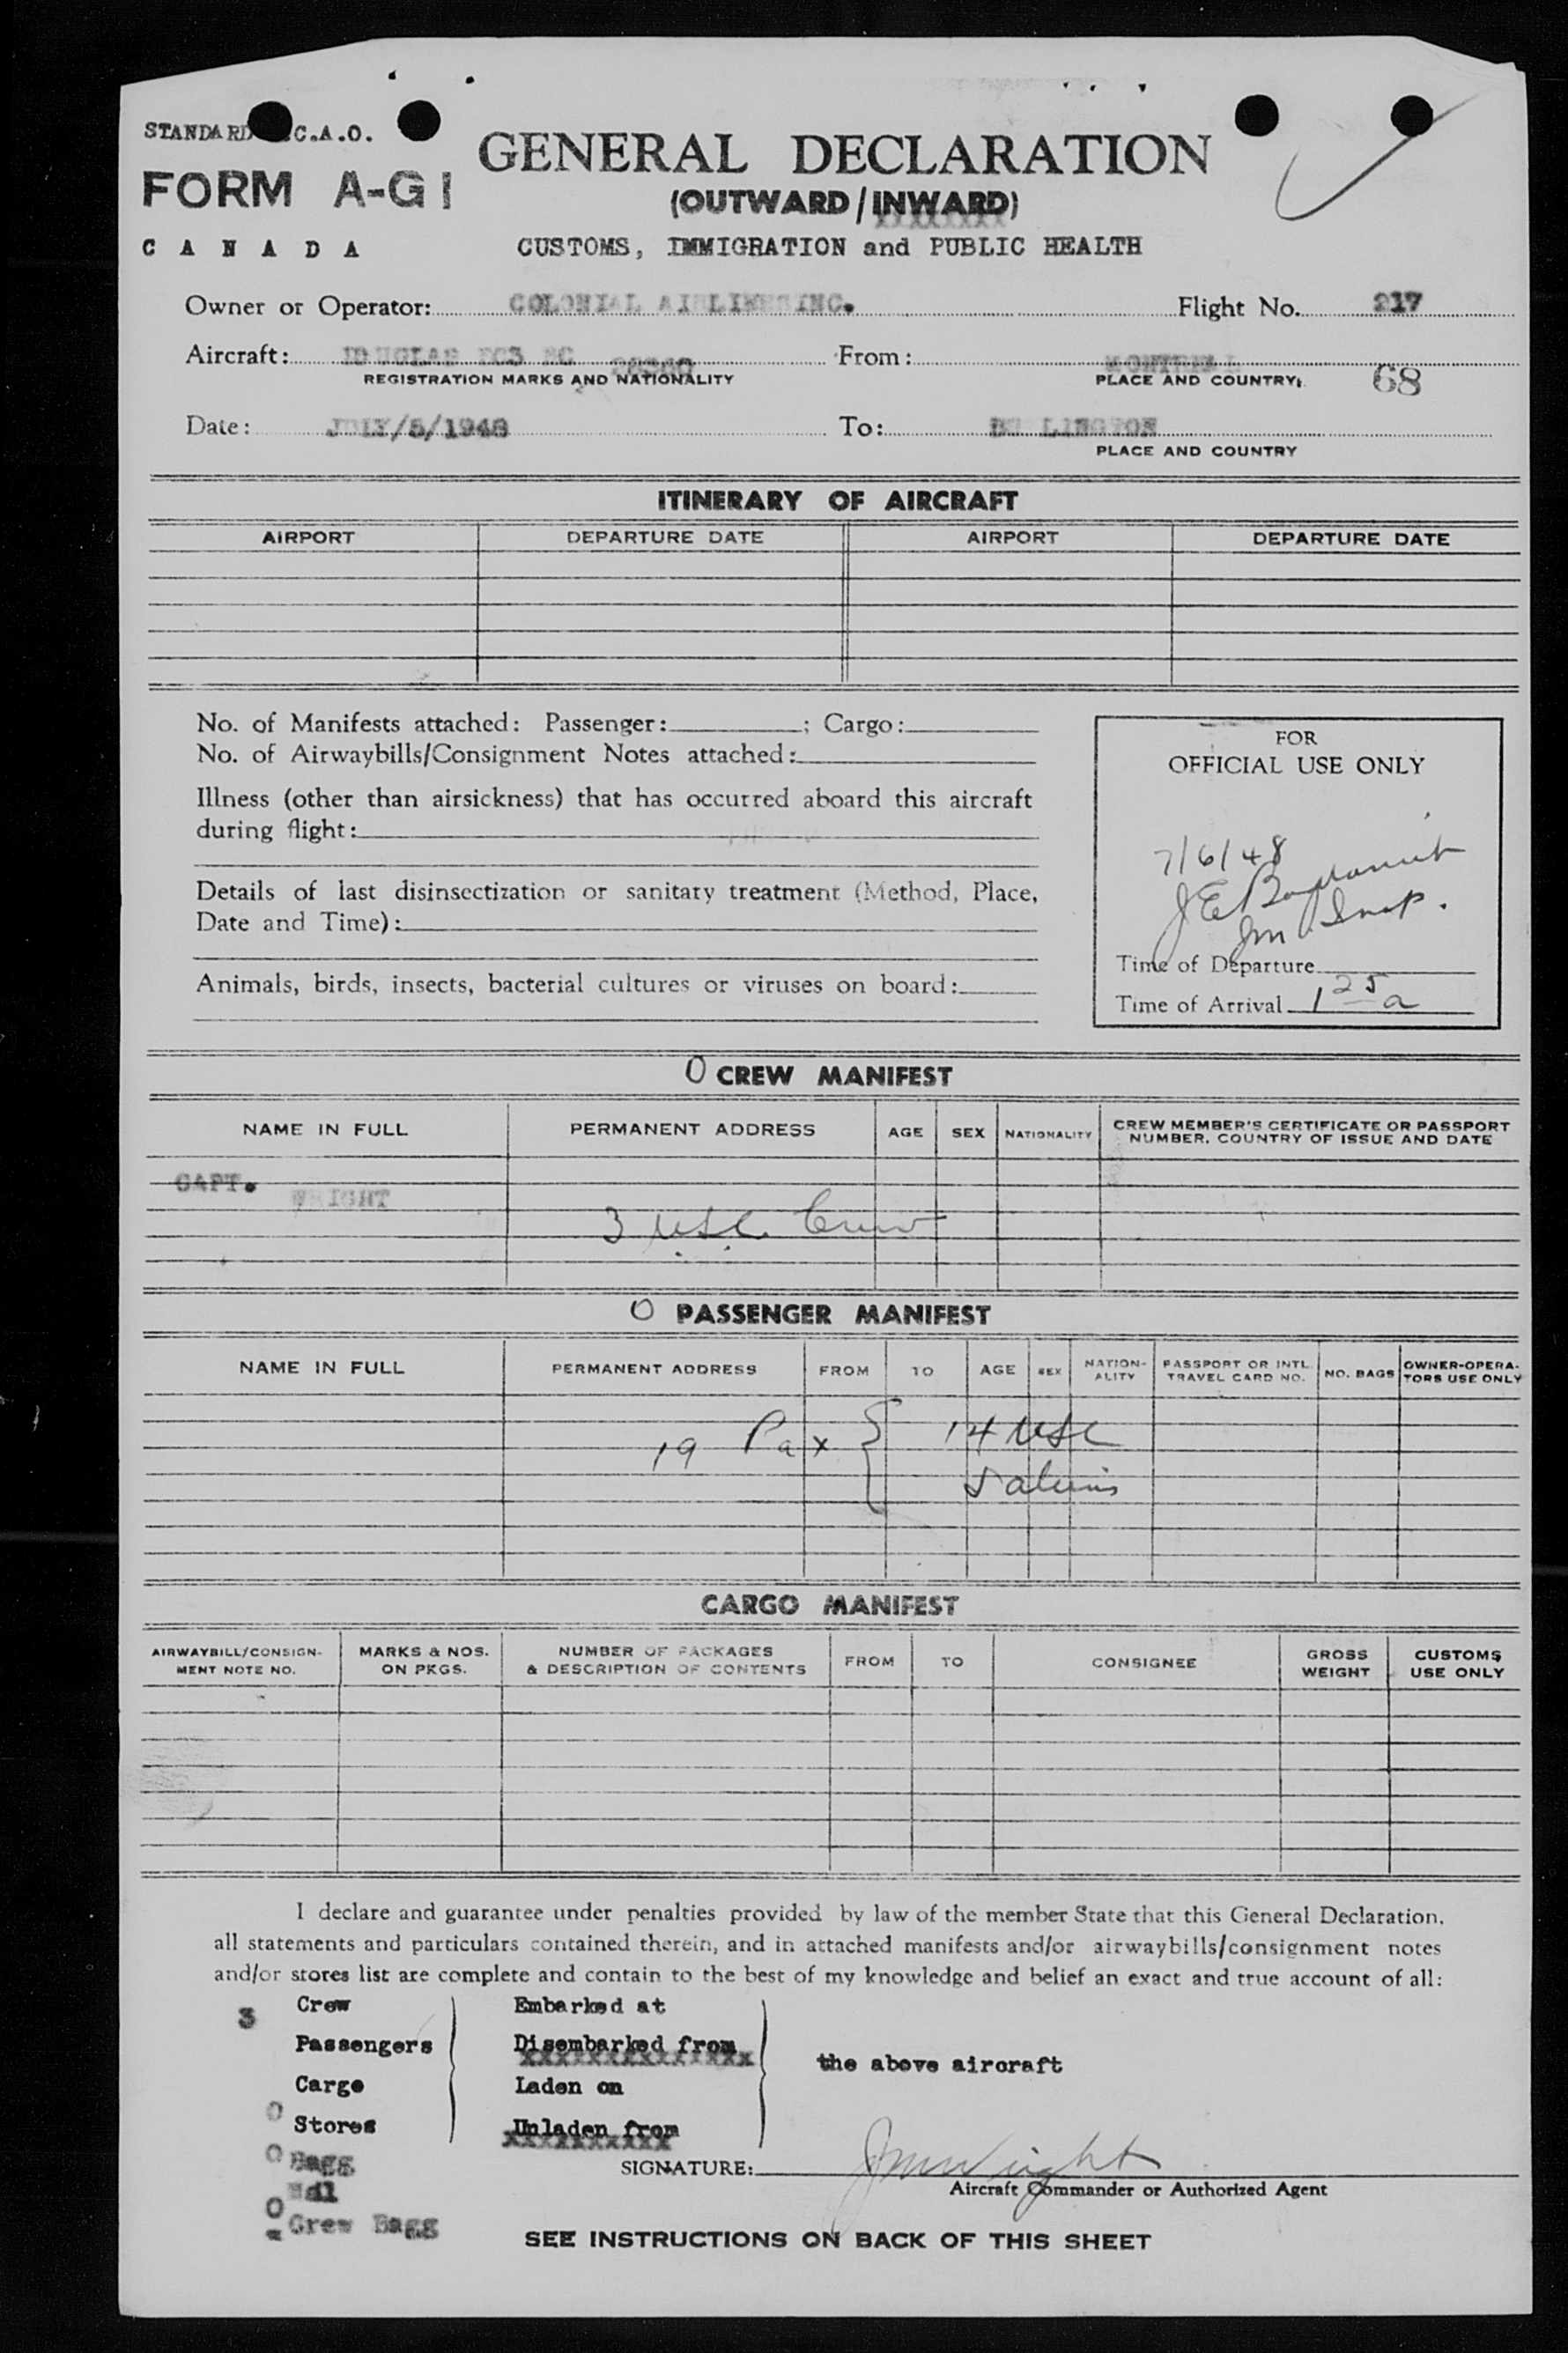 STANDARD C.A.O.
FORM A-G1
GENERAL DECLARATION
(OUTWARD/INWARD)
CANADA
CUSTOMS, IMMIGRATION and PUBLIC HEALTH
Owner or Operator: COLONIAL AIRLINES INC. Flight No. 217
Aircraft: DOUGLAS From: MONTREAL
REGISTRATION MARKS AND NATIONALITY PLACE AND COUNTRY 68
Date: JULY/5/1948 To: BURLINGTON
PLACE AND COUNTRY
ITINERARY OF AIRCRAFT
AIRPORT DEPARTURE DATE AIRPORT DEPARTURE DATE
No. of Manifests attached: Passenger: ; Cargo:
No. of Airwaybills/Consignment Notes attached:
Illness (other than airsickness) that has occurred aboard this aircraft
during flight:
Details of last disinsectization or sanitary treatment (Method, Place,
Date and Time):
Animals, birds, insects, bacterial cultures or viruses on board:
FOR
OFFICIAL USE ONLY
7/6/48
Im Insp.
Time of Departure
Time of Arrival 1 25 a
O CREW MANIFEST
NAME IN FULL PERMANENT ADDRESS AGE SEX NATIONALITY CREW MEMBER'S CERTIFICATE OR PASSPORT
NUMBER, COUNTRY OF ISSUE AND DATE
CAPT. WRIGHT
3 USC. Crew
O PASSENGER MANIFEST
NAME IN FULL PERMANENT ADDRESS FROM TO AGE SEX NATION-
ALITY PASSPORT OR INTL
TRAVEL CARD NO. NO. BAGS OWNER-OPERA-
TORS USE ONLY
19 Pax { 14 USC
5 aliens
CARGO MANIFEST
AIRWAYBILL/CONSIGN-
MENT NOTE NO. MARKS & NOS.
ON PKGS. NUMBER OF PACKAGES
& DESCRIPTION OF CONTENTS FROM TO CONSIGNEE GROSS
WEIGHT CUSTOMS
USE ONLY
I declare and guarantee under penalties provided by law of the member State that this General Declaration,
all statements and particulars contained therein, and in attached manifests and/or airwaybills/consignment notes
and/or stores list are complete and contain to the best of my knowledge and belief an exact and true account of all:
3 Crew Embarked at
Passengers Disembarked from
the above aircraft
Cargo Laden on
O Stores Unladen from
O Bagg
SIGNATURE: J M Wright
O Mdl
Aircraft Commander or Authorized Agent
Crew Bagg
SEE INSTRUCTIONS ON BACK OF THIS SHEET